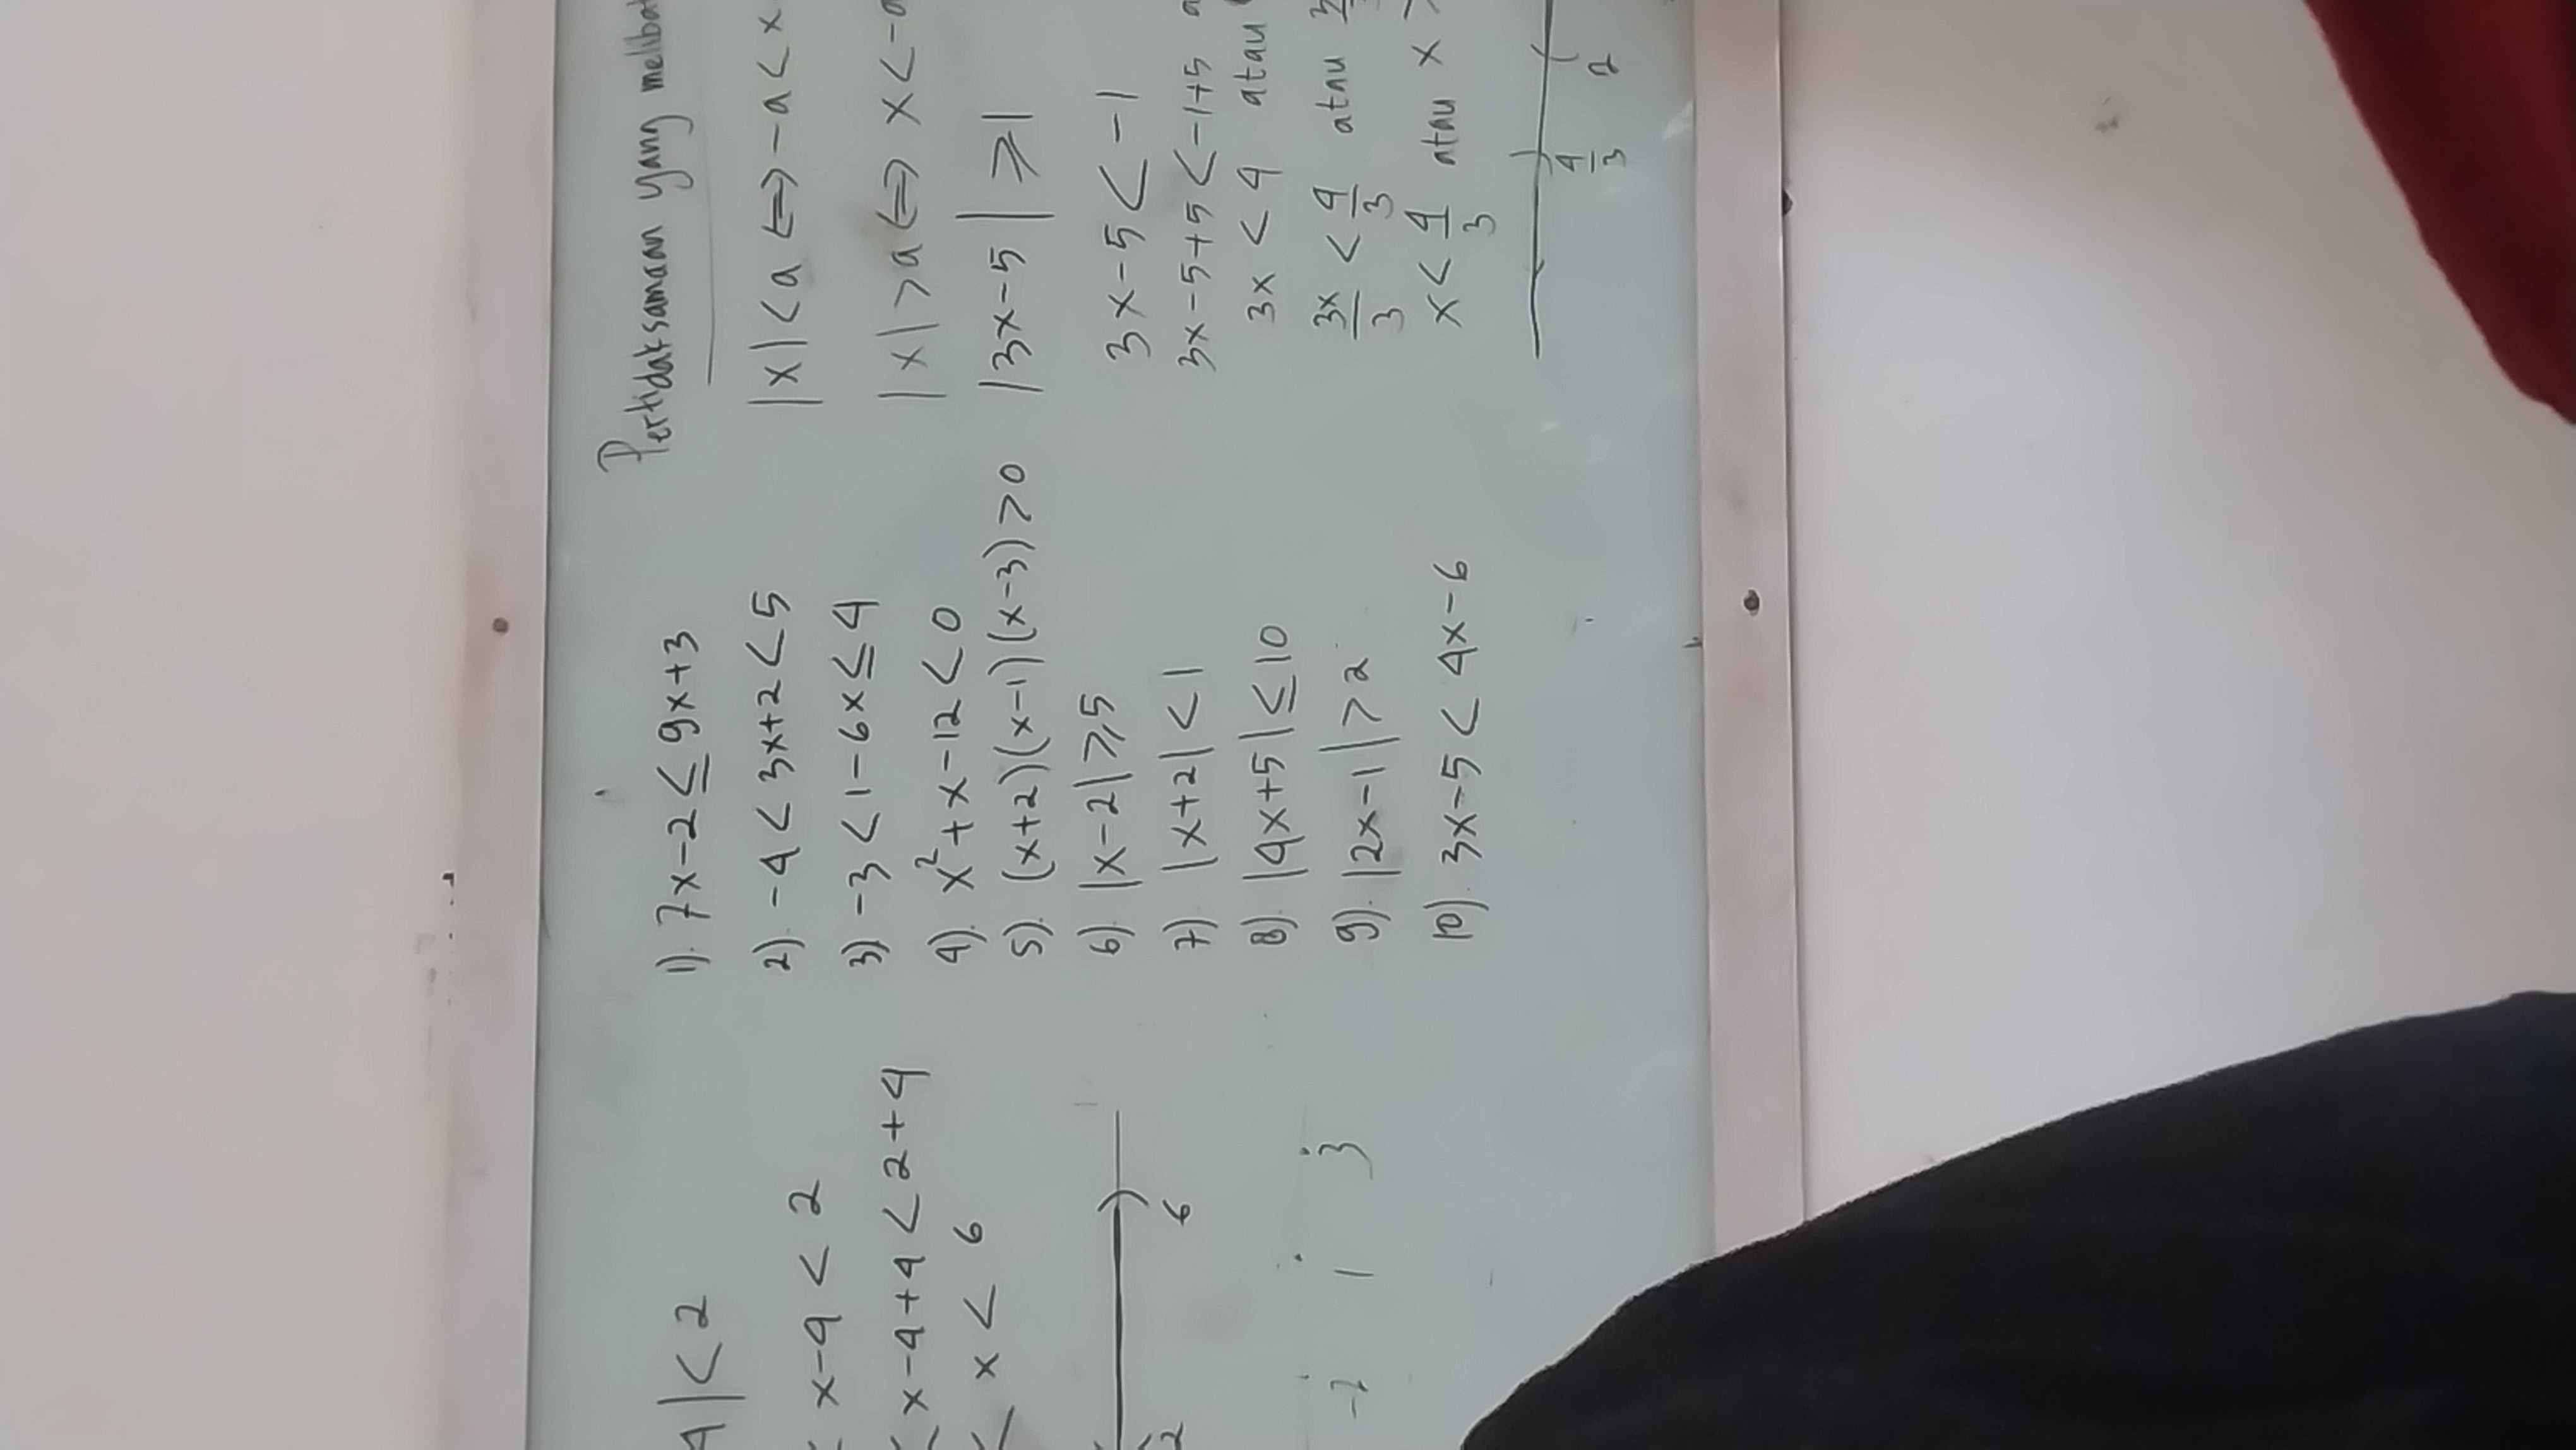 4|<2
< x-4 < 2
< x-4+4 < 2+4
< x < 6
2 6
-2 1 3
1). 7x-2 ≤ 9x+3
2). -4 < 3x+2 < 5
3) -3 < 1-6x ≤ 4
4). x²+x-12 < 0
5). (x+2)(x-1)(x-3) > 0
6) |x-2| ≥ 5
7) |x+2| < 1
8). |4x+5| ≤ 10
9). |2x-1| > 2
10). 3x-5 < 4x-6
Pertidaksamaan yang
|x| < a ⟺ -a < x
|x| > a ⟺ x < -a
|3x-5| ≥ 1
3x-5 < -1
3x-5+5 < -1+5
3x < 4 atau
3x/3 < 4/3 atau
x < 4/3 atau x >
4/3 2